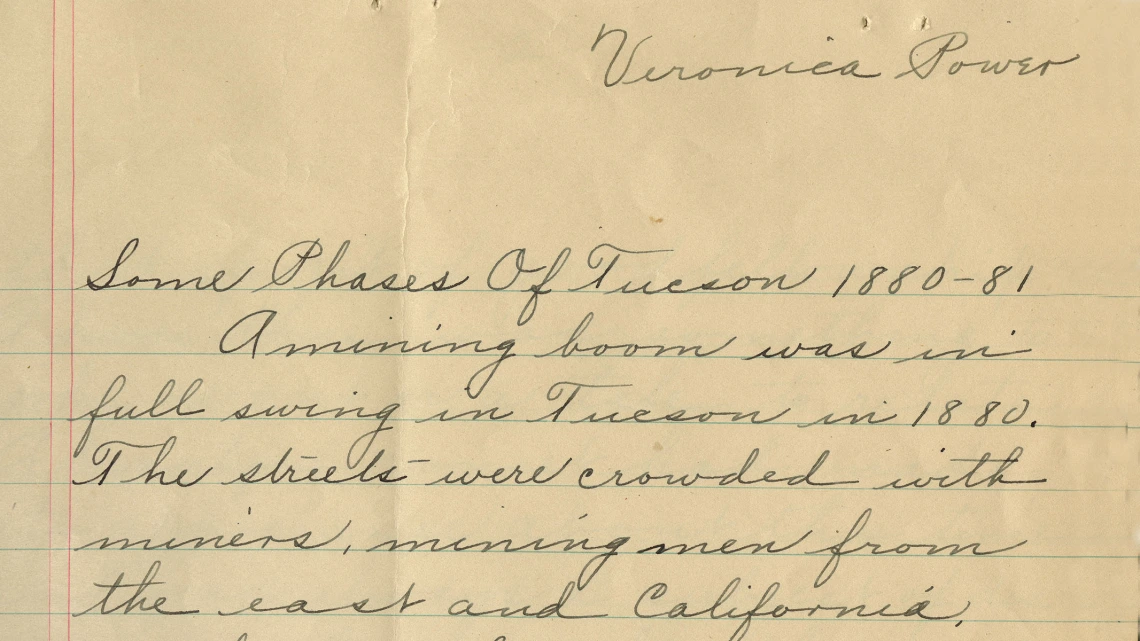 Veronica Power
Some Phases Of Tucson 1880-81
A mining boom was in
full swing in Tucson in 1880.
The streets were crowded with
miners, mining men from
the east and California,